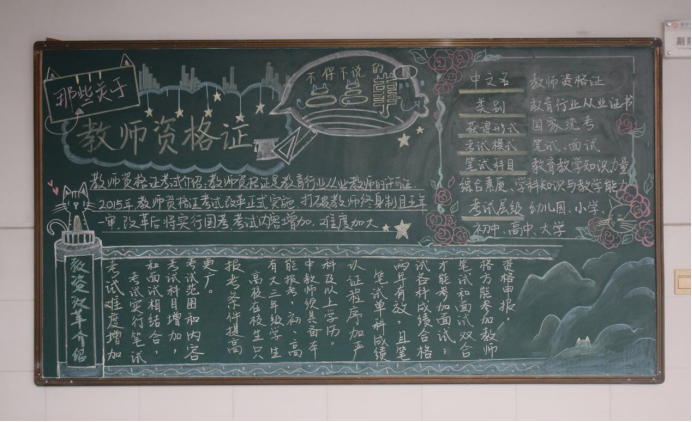 那些关于
教师资格证
不得不说的
教师资格证考试介绍：教师资格证是教育行业从业教师的许可证
2015年教师资格证考试改革正式实施，打破教师终身制且五年
一审，改革后将实行国考，考试内容增加，难度加大
中文名 教师资格证
类别 教育行业从业证书
获得形式 国家统考
考试模式 笔试、面试
笔试科目 教育教学知识力量
综合素质、学科知识与教学能力
考试层级 幼儿园、小学、
初中、高中、大学
教资改革介绍
考试难度增加
考试实行笔试
和面试相结合，
考试科目增加，
考试范围和内容
更广。
报考条件提高
高校在校生只
有大三年级学生
能报考，初、高
中教师须具备本
科及以上学历。
认证程序加严
笔试单科成绩
两年有效，且笔
试各科成绩合格
才能参加面试；
笔试和面试双合
格方能参加教师
资格申报！